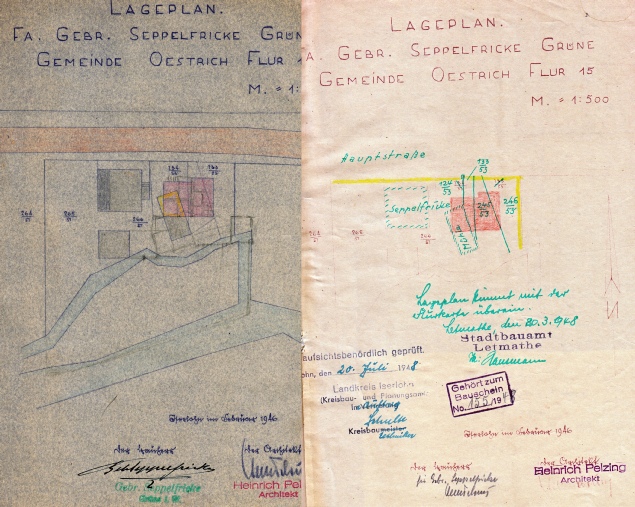 LAGEPLAN.
FA. GEBR. SEPPELFRICKE GRÜN
GEMEINDE OESTRICH FLUR 1
M. = 1:
Iserlohn im Februar 1946
der Bauherr
der Architekt
Gebr. Seppelfricke
Heinrich Pel
Architekt
LAGEPLAN.
A. GEBR. SEPPELFRICKE GRÜNE
GEMEINDE OESTRICH FLUR 15
M. = 1:500
Hauptstraße
133
53
124
53
Seppelfricke
246
53
246
53
Lageplan stimmt mit der
Flurkarte überein.
Letmathe, den 20.3.1948
Stadtbauamt
Letmathe
aufsichtsbehördlich geprüft.
ohn, den 20. Juli 1948
Landkreis Iserlohn
(Kreisbau- und Planungsamt)
Im Auftrag
Kreisbaumeister
Gehört zum
Bauschein
No. 155 1948
Iserlohn im Februar 1946
der Bauherr
der Architekt
Gebr. Seppelfricke
Heinrich Pelzing
Architekt